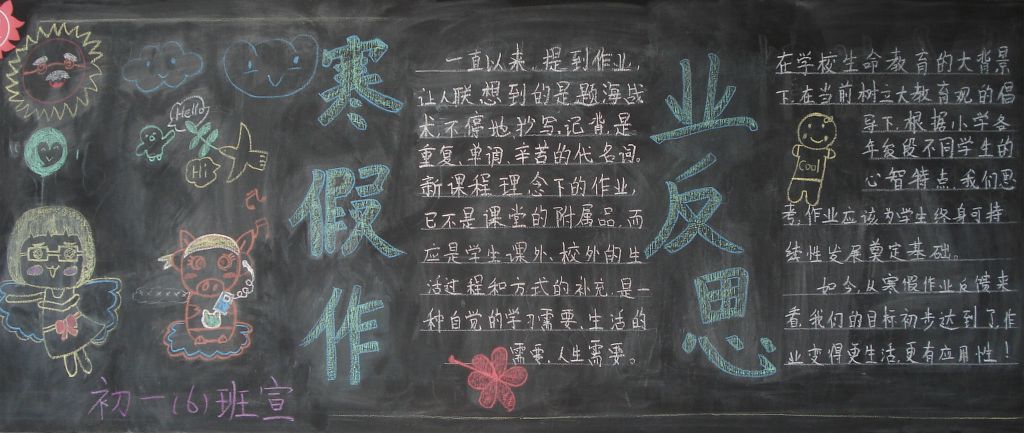 寒假作
业反思
Hello
Hi
初一(6)班宣
一直以来,提到作业,
让人联想到的是题海战
术,不停地抄写、记背,是
重复、单调、辛苦的代名词。
新课程理念下的作业,
已不是课堂的附属品,而
应是学生课外、校外的生
活过程和方式的补充,是一
种自觉的学习需要、生活的
需要、人生需要。
在学校生命教育的大背景
下,在当前树立大教育观的倡
导下,根据小学各
年级段不同学生的
心智特点,我们思
考,作业应该为学生终身可持
续性发展奠定基础。
如今,从寒假作业反馈来
看,我们的目标初步达到了,作
业变得更生活,更有应用性!
Cool